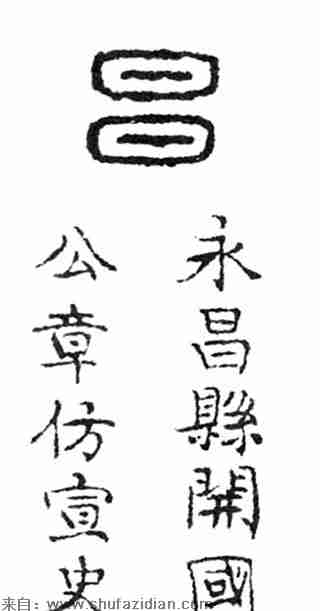 昌
永昌縣開國
公章仿宣史
来自：www.shufazidian.com